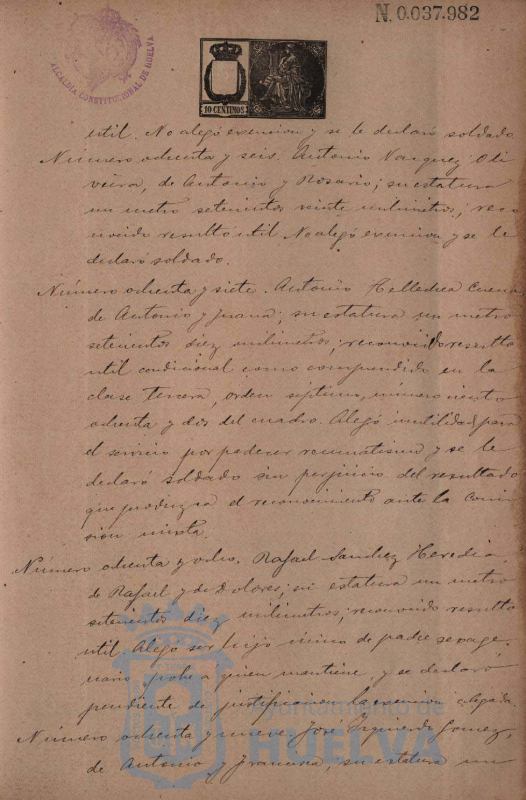 N. 0.037.982
ALCALDIA CONSTITUCIONAL DE HUELVA
10 CENTIMOS
util. No alegó exencion y se le declaró soldado
Número ochenta y seis. Antonio Vazquez Oli
veira, de Antonio y Rosario; su estatura
un metro setecientos veinte milimetros; reco
nocido resultó util. No alegó exencion y se le
declaró soldado.
Número ochenta y siete. Antonio Cuenca
de Antonio y Juana; su estatura un metro
setecientos diez milimetros; reconocido resultó
util condicional como comprendido en la
clase tercera, orden septimo, número ciento
ochenta y dos del cuadro. Alegó inutilidad para
el servicio por padecer reumatismo y se le
declaró soldado sin perjuicio del resultado
que produzca el reconocimiento ante la Comi
sión mixta.
Número ochenta y ocho. Rafael Sanchez Heredia
de Rafael y de Dolores; su estatura un metro
setecientos diez milimetros; reconocido resultó
util. Alegó ser hijo único de padre sexage
nario pobre a quien mantiene y se declaró
pendiente de justificar la alegada.
Número ochenta y nueve. José Izquierdo Gomez,
de Antonio y Francisca, su estatura un
Ayuntamiento de
HUELVA